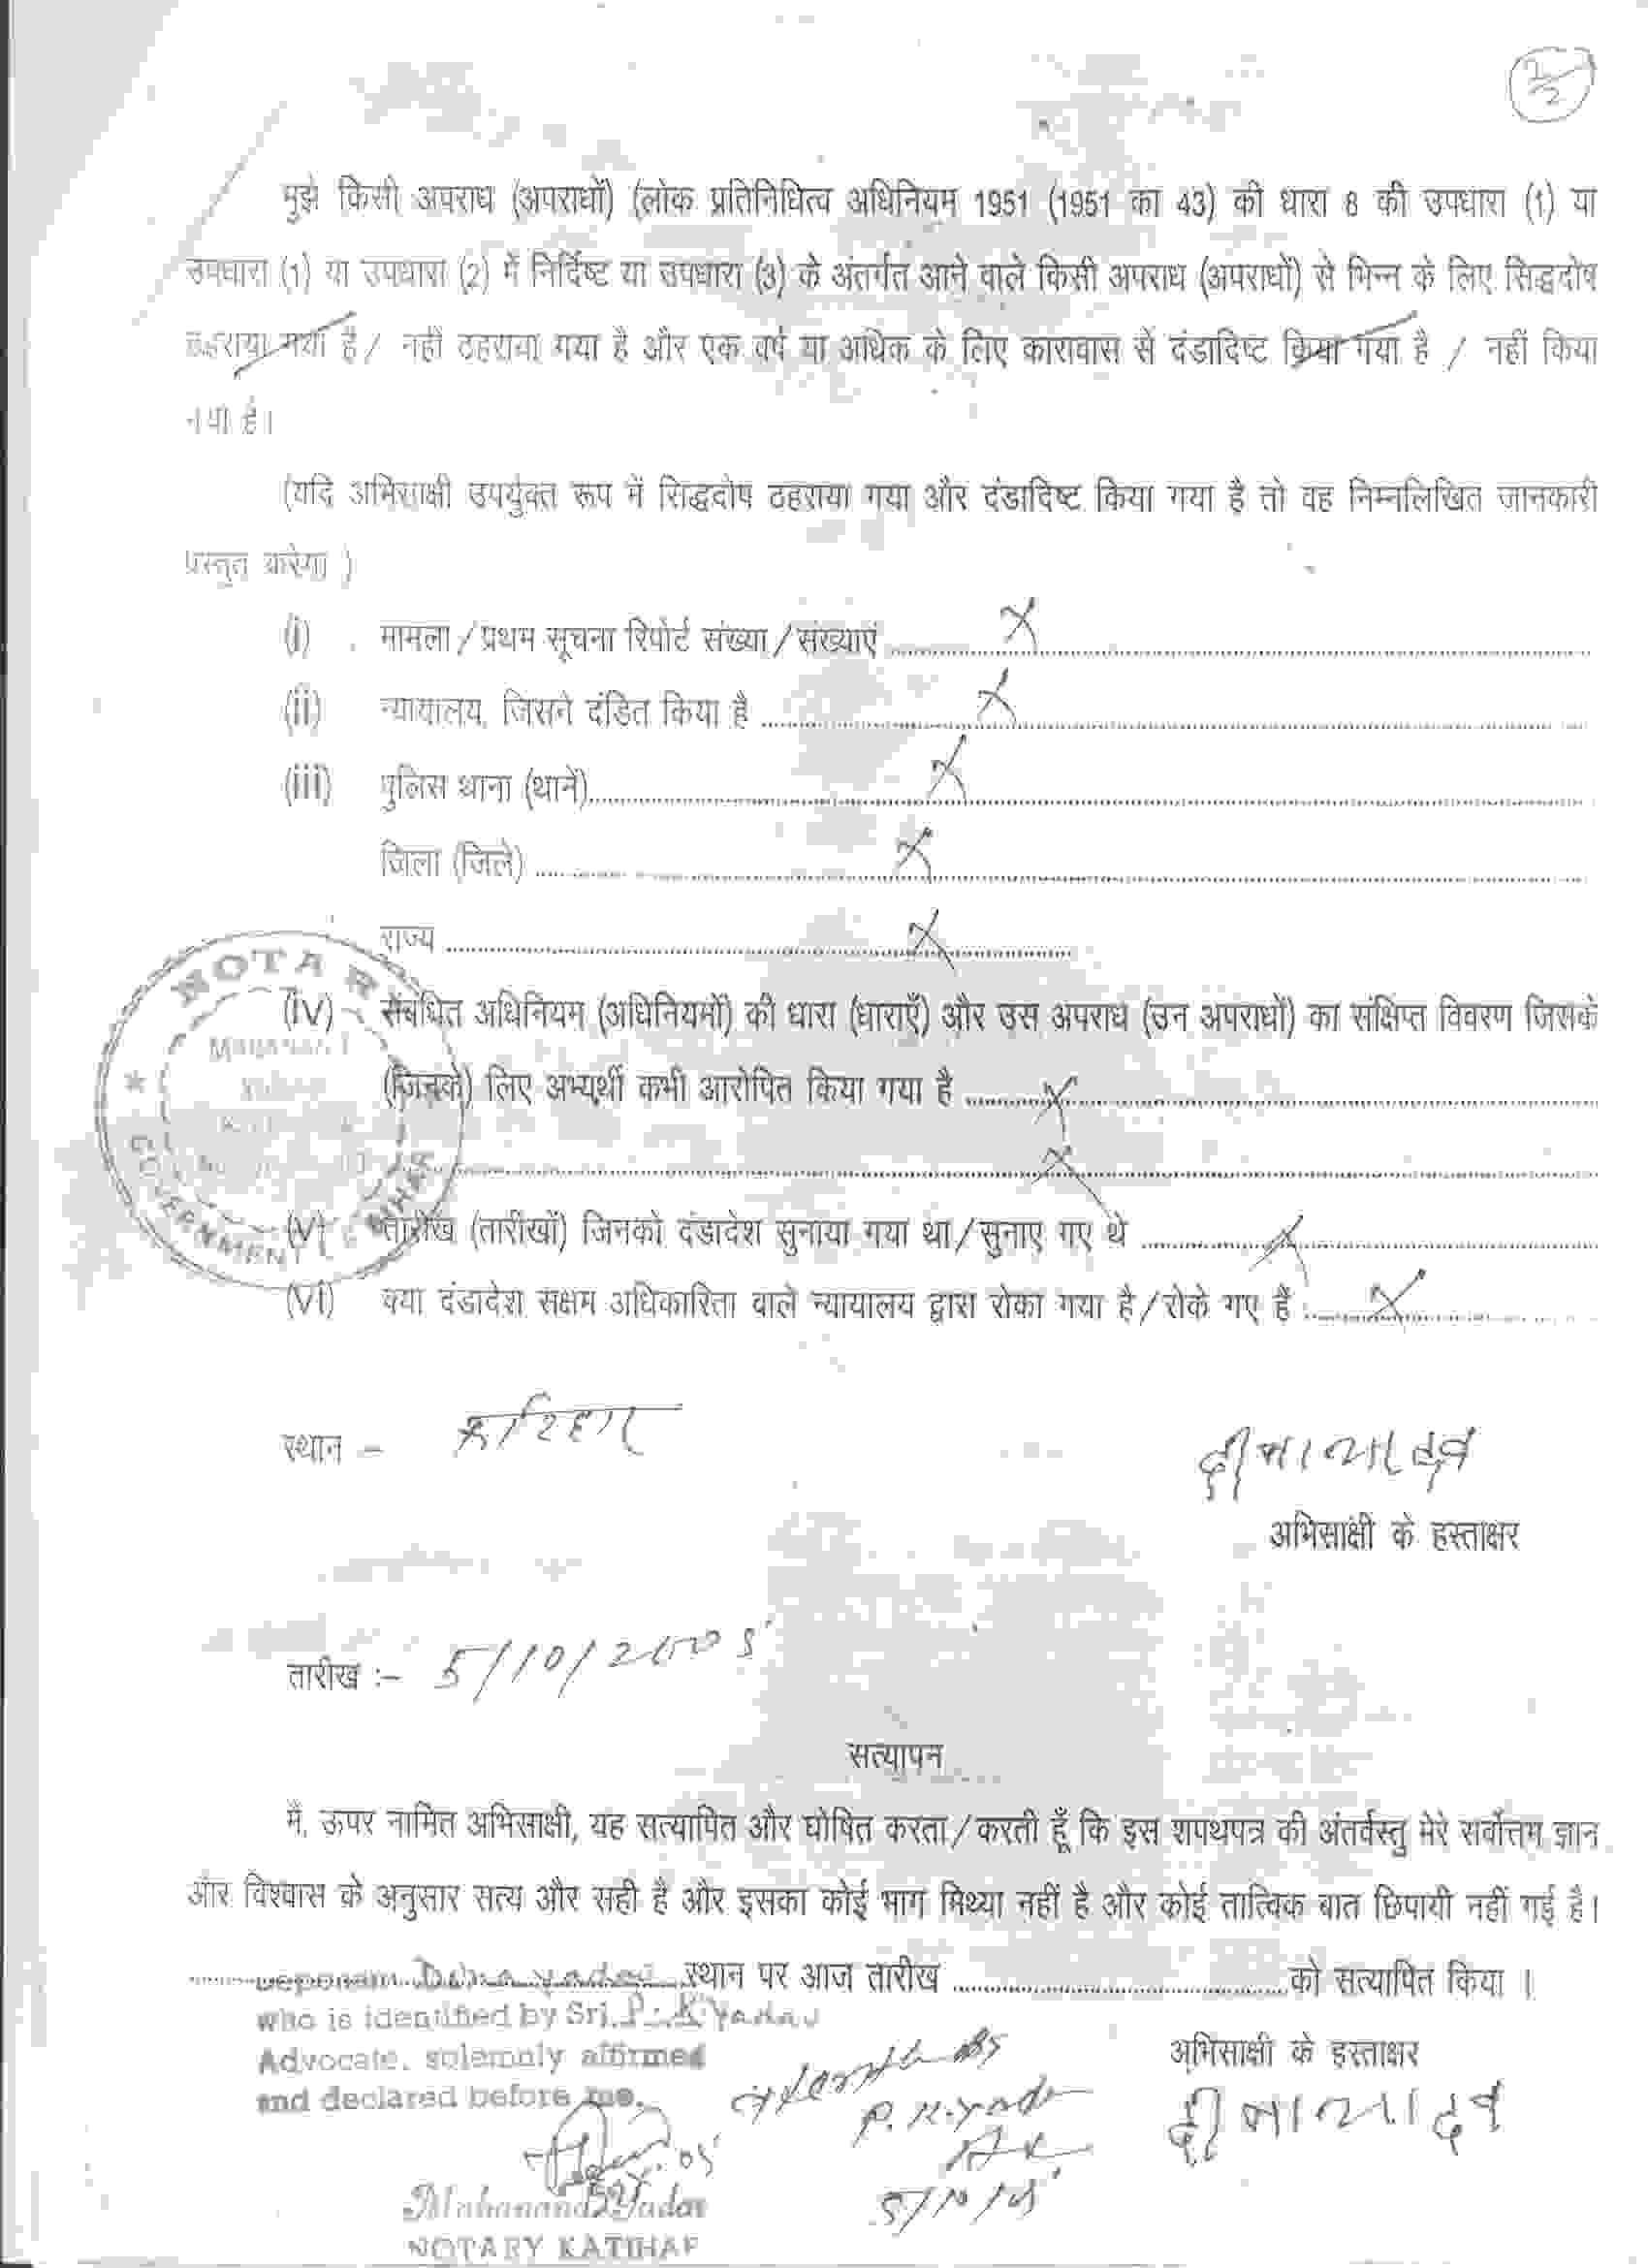 2/2
मुझे किसी अपराध (अपराधों) (लोक प्रतिनिधित्व अधिनियम 1951 (1951 का 43) की धारा 8 की उपधारा (1) या
उपधारा (1) या उपधारा (2) में निर्दिष्ट या उपधारा (3) के अंतर्गत आने वाले किसी अपराध (अपराधों) से भिन्न के लिए सिद्धदोष
ठहराया गया है / नहीं ठहराया गया है और एक वर्ष या अधिक के लिए कारावास से दंडादिष्ट किया गया है / नहीं किया
गया है।
(यदि अभिसाक्षी उपर्युक्त रूप में सिद्धदोष ठहराया गया और दंडादिष्ट किया गया है तो वह निम्नलिखित जानकारी
प्रस्तुत करेगा )
(i) मामला / प्रथम सूचना रिपोर्ट संख्या / संख्याएं ........ X
(ii) न्यायालय, जिसने दंडित किया है ........ X
(iii) पुलिस थाना (थाने) ........ X
जिला (जिले) ........ X
राज्य ........ X
NOTAR
(iv) संबंधित अधिनियम (अधिनियमों) की धारा (धाराएँ) और उस अपराध (उन अपराधों) का संक्षिप्त विवरण जिसके
(जिनके) लिए अभ्यर्थी कभी आरोपित किया गया है ........ X
........ X
GOVERNMENT BIHAR
(v) तारीख (तारीखों) जिनको दंडादेश सुनाया गया था / सुनाए गए थे ........ X
(vi) क्या दंडादेश सक्षम अधिकारिता वाले न्यायालय द्वारा रोका गया है / रोके गए हैं ........ X
स्थान :- कटिहार
अभिसाक्षी के हस्ताक्षर
तारीख :- 5/10/2005
सत्यापन
मैं, ऊपर नामित अभिसाक्षी, यह सत्यापित और घोषित करता / करती हूँ कि इस शपथपत्र की अंतर्वस्तु मेरे सर्वोत्तम ज्ञान
और विश्वास के अनुसार सत्य और सही है और इसका कोई भाग मिथ्या नहीं है और कोई तात्विक बात छिपायी नहीं गई है।
........ स्थान पर आज तारीख ........ को सत्यापित किया ।
Deponent
who is identified by Sri. P. K Yadav
Advocate, solemnly affirmed
and declared before me.
अभिसाक्षी के हस्ताक्षर
P. K. Yadav
5/10/05
Mahanand Yadav
NOTARY KATIHAR